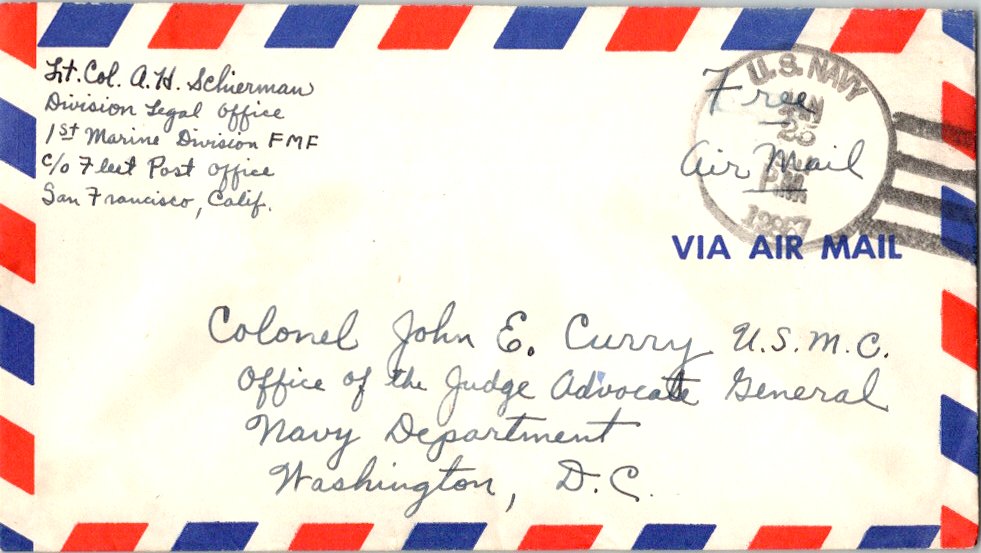 Lt. Col. A. H. Schierman
Division Legal Office
1st Marine Division FMF
c/o Fleet Post Office
San Francisco, Calif.
U.S. NAVY
Free
Air Mail
VIA AIR MAIL
Colonel John E. Curry U.S.M.C.
Office of the Judge Advocate General
Navy Department
Washington, D.C.